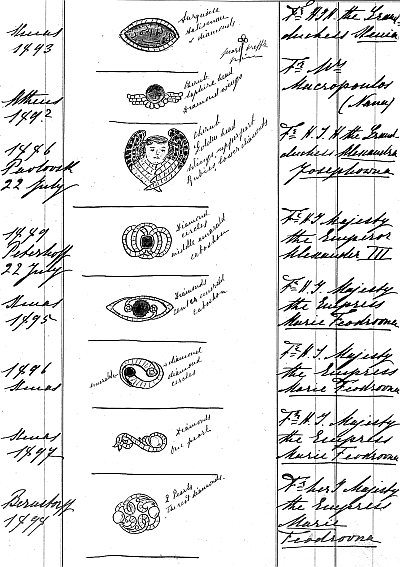 Xmas
1893
Turquoise
& diamonds
Fr. H.I.H. the Grand
duchess Xenia
Athens
1892
cherub
sapphire head
diamond wings
Fr. Mrs
Macropoulos
(Nana)
1886
Pavlovsk
22 July
Cherub
head
wings, upper part
Rubies, lower diamonds
Fr. H. I. H the Grand
duchess Alexandra
Josephowna
1889
Peterhoff
22 July
Diamond
circles
middle emerald
cabochon
Fr. H. I. Majesty
the Emperor
Alexander III
Xmas
1895
Diamonds
center emerald
cabochon
Fr. H. I. Majesty
the Empress
Marie Feodrovna
1896
Xmas
emerald
diamond
diamond
circles
Fr. H. I. Majesty
the Empress
Marie Feodrovna
Xmas
1897
Diamonds
One pearl
Fr. H. I. Majesty
the Empress
Marie Feodrovna
Bernstorff
1899
2 Pearls
The rest diamonds.
Fr. her I. Majesty
the Empress
Marie
Feodrovna